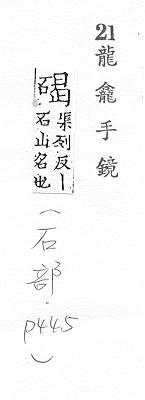 21龍龕手鏡
碣渠列反丨
石山名也
(石部.p445)